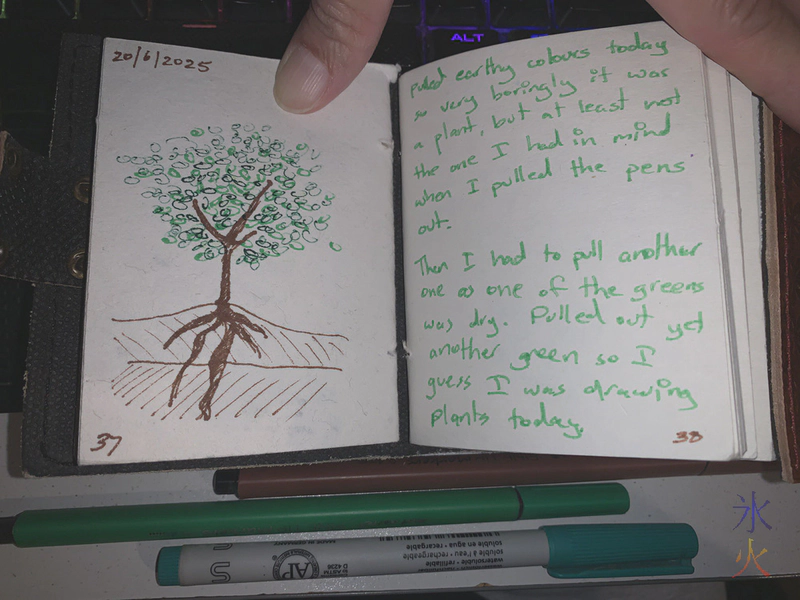 ALT
20/6/2025
37
pulled earthy colours today
so very boringly it was
a plant, but at least not
the one I had in mind
when I pulled the pens
out.
Then I had to pull another
one as one of the greens
was dry. Pulled out yet
another green so I
guess I was drawing
plants today.
38
氷
火
U S
AP
D 4236
soluble en agua • recargable
soluble à l'eau •
watersoluble • refillable